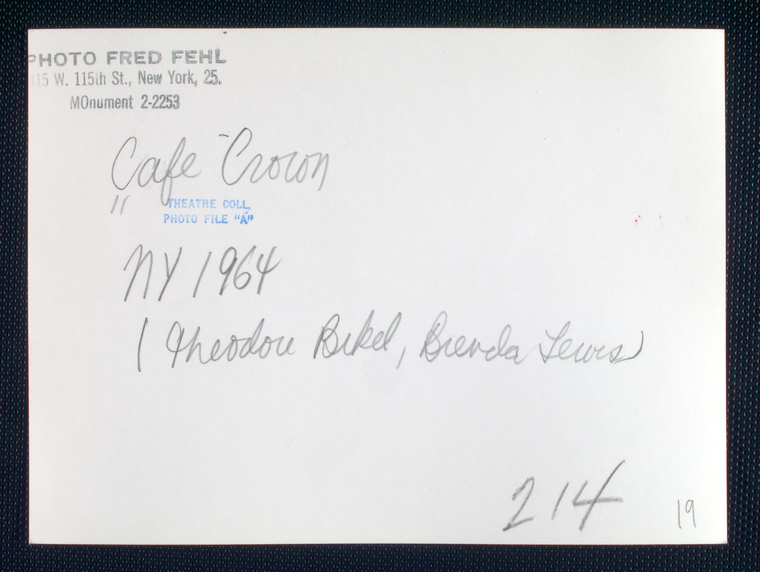 PHOTO FRED FEHL
415 W. 115th St., New York, 25.
MOnument 2-2253
Cafe Crown
"
THEATRE COLL.
PHOTO FILE "A"
NY 1964
(Theodore Bikel, Brenda Lewis)
214
19